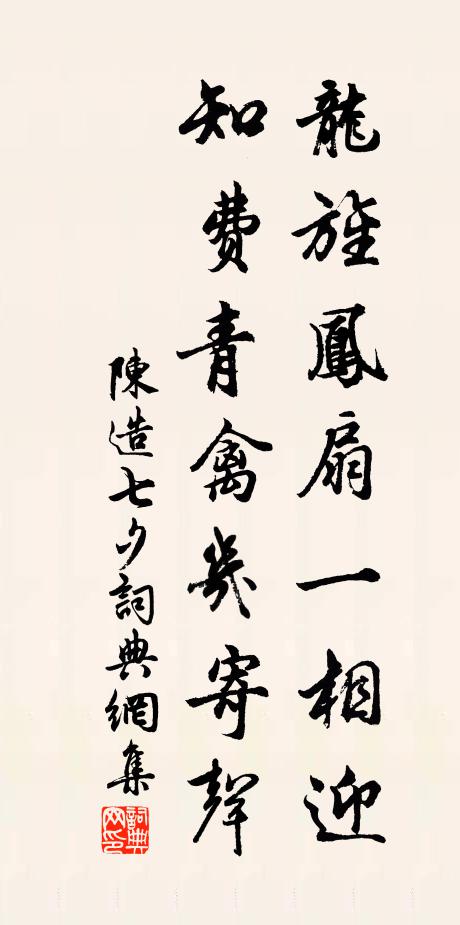 龍旌鳳扇一相迎
知費青禽幾寄聲
陳造七夕詞典網集
詞典網印